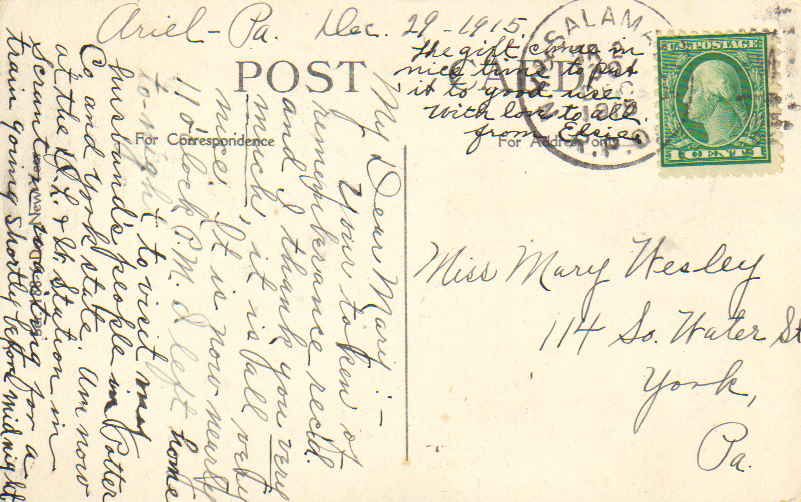 Ariel - Pa. Dec. 29 - 1915.
My Dear Mary :-
Your token of
remembrance rec'd.
and I thank you very
much, it is all very
nice. It is now nearly
11 o'clock P.M. I left home
to-night to visit my
husband's people in Potter
Co and York state. Am now
at the D. L. & W. Station in
Scranton waiting for a
train going shortly before midnight
The gift came in
nice time to put
it to good use.
With love to all.
from Elsie.
POST CARD
For Correspondence
For Address only
SALAMA
R.P.O.
U.S. POSTAGE
1 CENT 1
Miss Mary Wesley
114 So. Water St
York,
Pa.